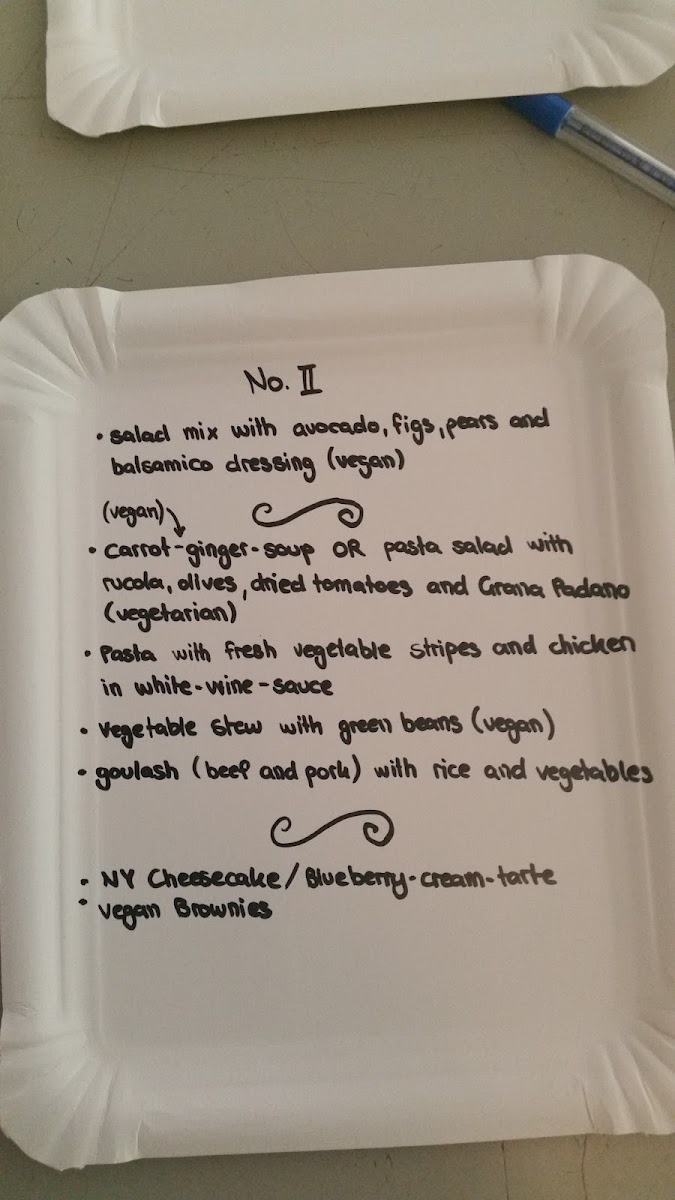 No. II
• salad mix with avocado, figs, pears and
balsamico dressing (vegan)
(vegan)
• carrot-ginger-soup OR pasta salad with
rucola, olives, dried tomatoes and Grana Padano
(vegetarian)
• Pasta with fresh vegetable stripes and chicken
in white-wine-sauce
• vegetable stew with green beans (vegan)
• goulash (beef and pork) with rice and vegetables
• NY Cheesecake/Blueberry-cream-tarte
• vegan Brownies